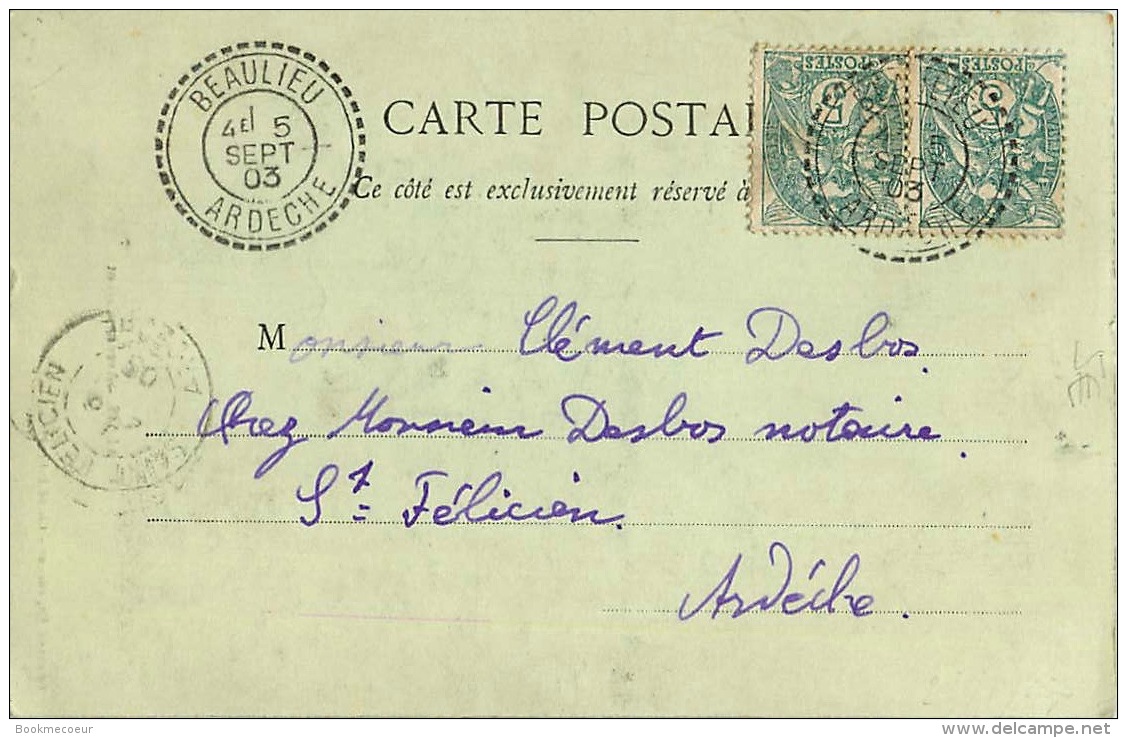 BEAULIEU
4E 5
SEPT
03
ARDECHE
CARTE POSTA
Ce côté est exclusivement réservé à
POSTES
POSTES
SEPT
03
Monsieur Clément Desbos.
Chez Monsieur Desbos notaire.
St Félicien.
Ardèche.
SAINT FELICIEN
Bookmecoeur
www.delcampe.net